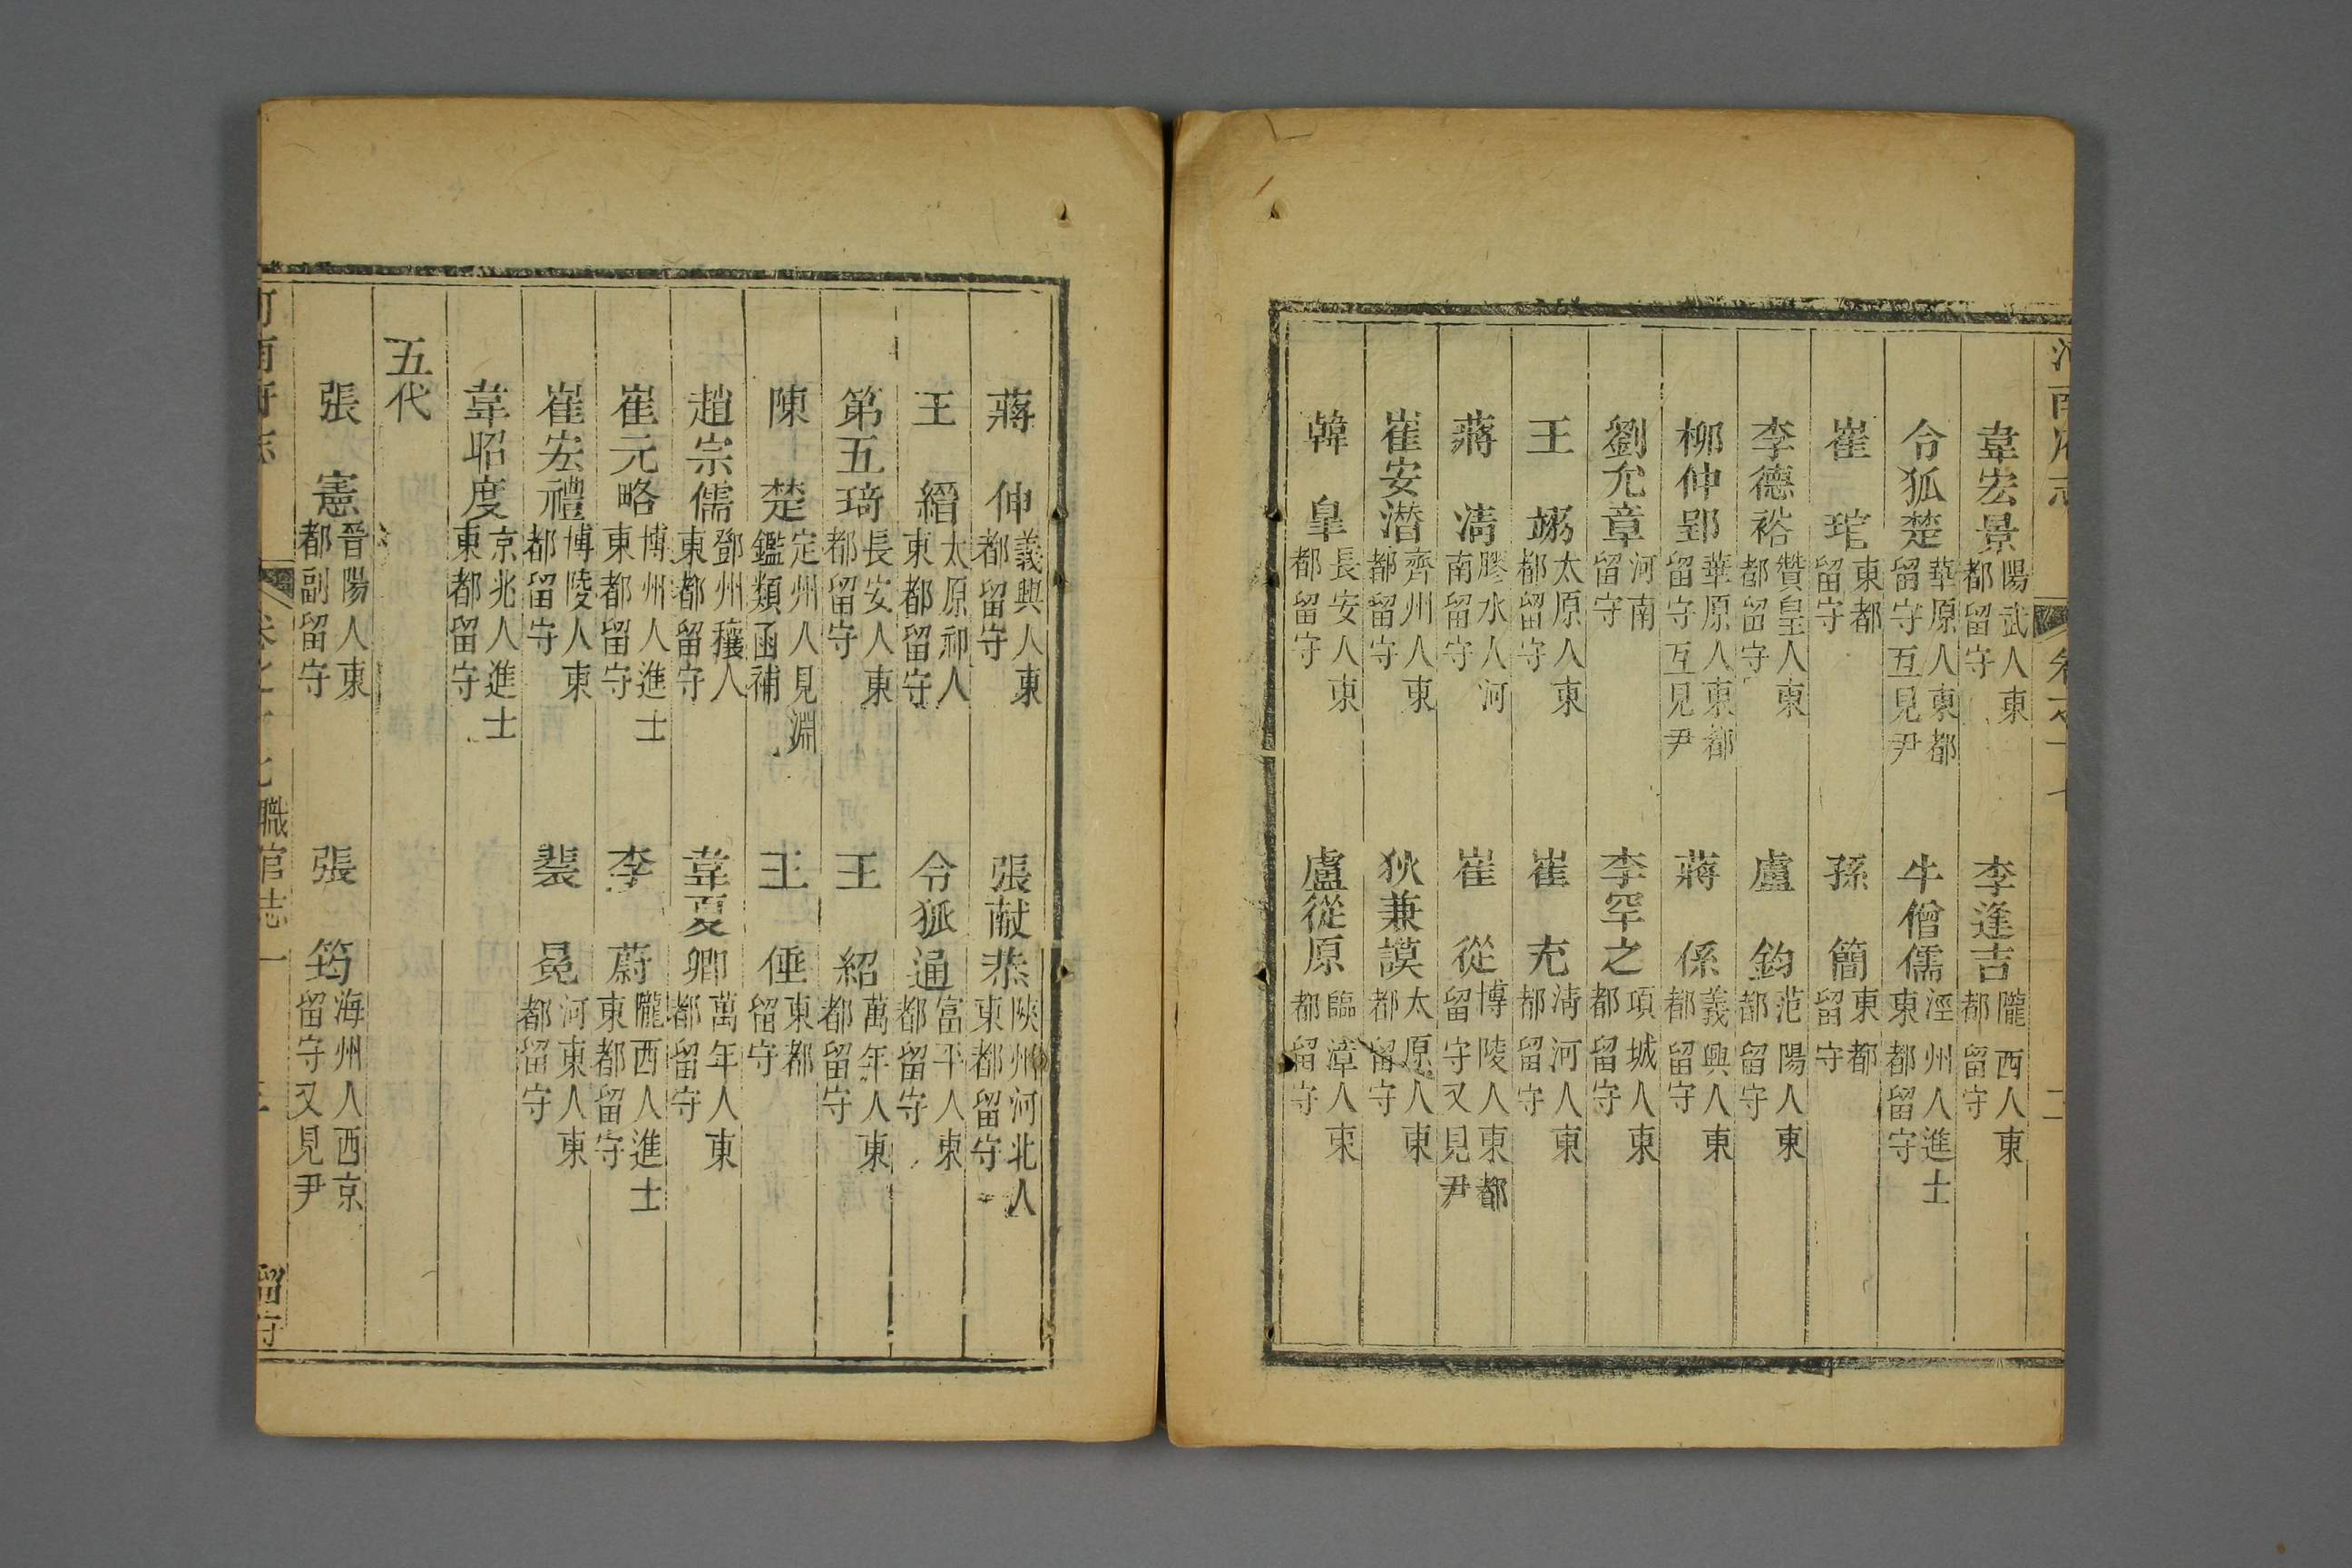 河南府志 卷之十七 二
韋宏景 陽武人東都留守 李逢吉 隴西人東都留守
令狐楚 華原人東都留守互見尹 牛僧儒 涇州人進士東都留守
崔琯 東都留守 孫簡 東都留守
李德裕 贊皇人東都留守 盧鈞 范陽人東都留守
柳仲郢 華原人東都留守互見尹 蔣係 義興人東都留守
劉允章 河南留守 李罕之 項城人東都留守
王 太原人東都留守 崔充 清河人東都留守
蔣清 膠水人河南留守 崔從 博陵人東都留守又見尹
崔安潛 齊州人東都留守 狄兼謨 太原人東都留守
韓皐 長安人東都留守 盧從原 臨漳人東都留守
蔣伸 義興人東都留守 張献恭 陝州河北人東都留守
王縉 太原祁人東都留守 令狐通 富平人東都留守
第五琦 長安人東都留守 王紹 萬年人東都留守
陳楚 定州人見淵鑑類函補 王倕 東都留守
趙宗儒 鄧州穰人東都留守 韋夏卿 萬年人東都留守
崔元略 博州人進士東都留守 李蔚 隴西人進士東都留守
崔宏禮 博陵人東都留守 裴冕 河東人東都留守
韋昭度 京兆人進士東都留守
五代
張憲 晉陽人東都副留守 張筠 海州人西京留守又見尹
河南府志 卷之十七 職官志一 三 留守